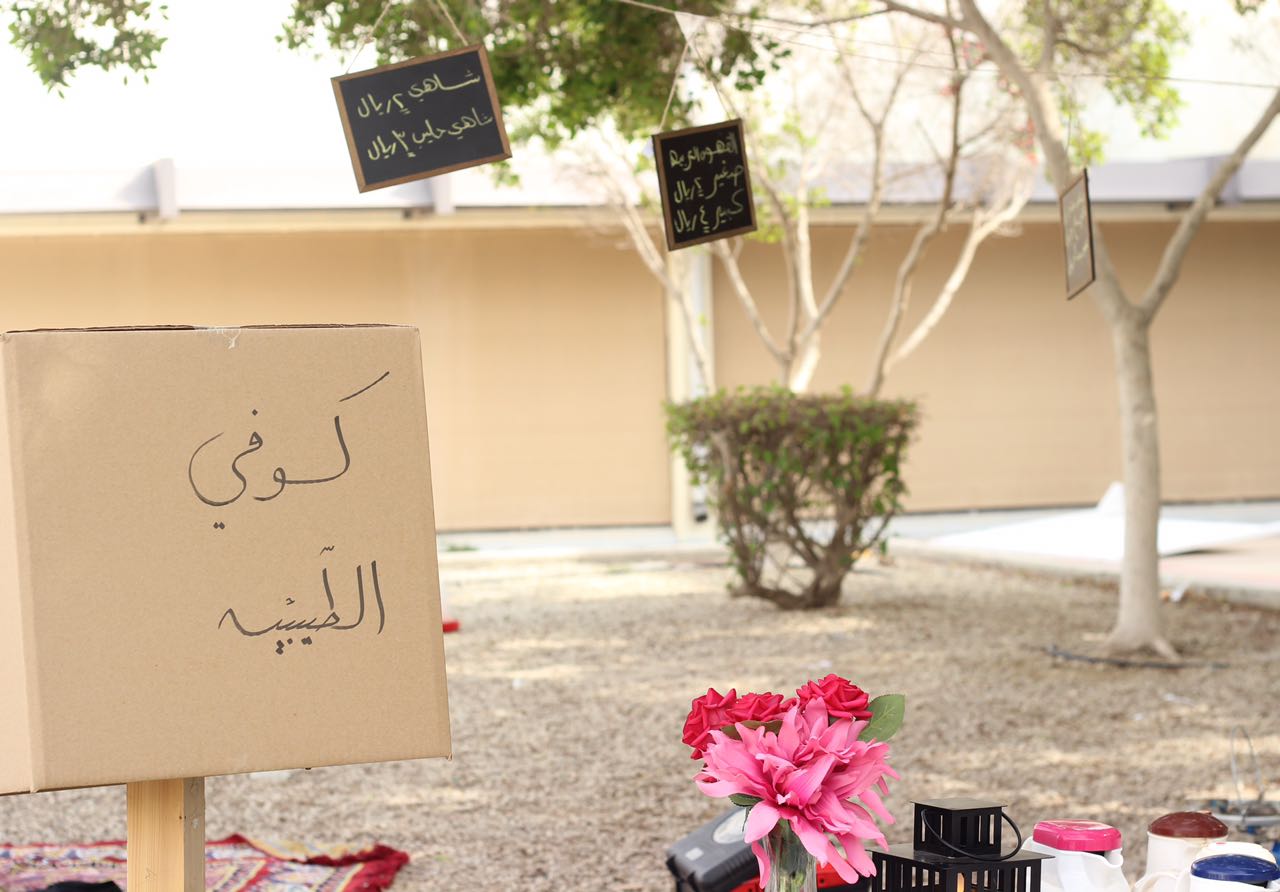 شاهي ٢ ريال
شاهي حليب ٣ ريال
القهوه العربيه
صغير ٢ ريال
كبير ٤ ريال
كوفي
الطيبيه